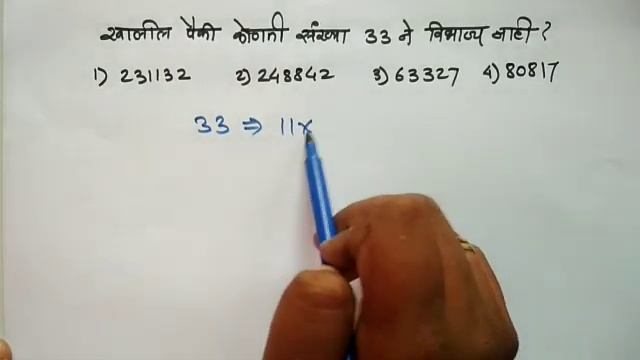 खालील पैकी कोणती संख्या 33 ने विभाज्य नाही?
1) 231132 2) 248842 3) 63327 4) 80817
33 ⇒ 11x